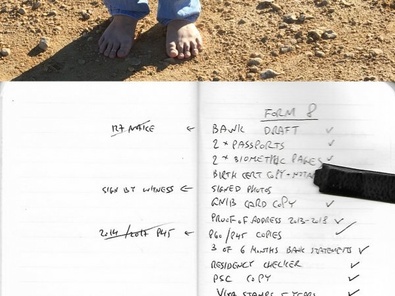 FORM 8
BANK DRAFT ✓
127 NOTICE ←
2 * PASSPORTS ✓
2 * BIOMETRIC PAGES ✓
BIRTH CERT COPY +
SIGN BY WITNESS ← SIGNED PHOTOS
GNIB CARD COPY ✓
PROOF OF ADDRESS 2013-2018 ✓
2014/2017 P45 ← P60/P45 COPIES ✓
3 OF 6 MONTHS BANK STATEMENTS ✓
RESIDENCY CHECKER ✓
PSC COPY ✓
VISA STAMPS 5 YEARS